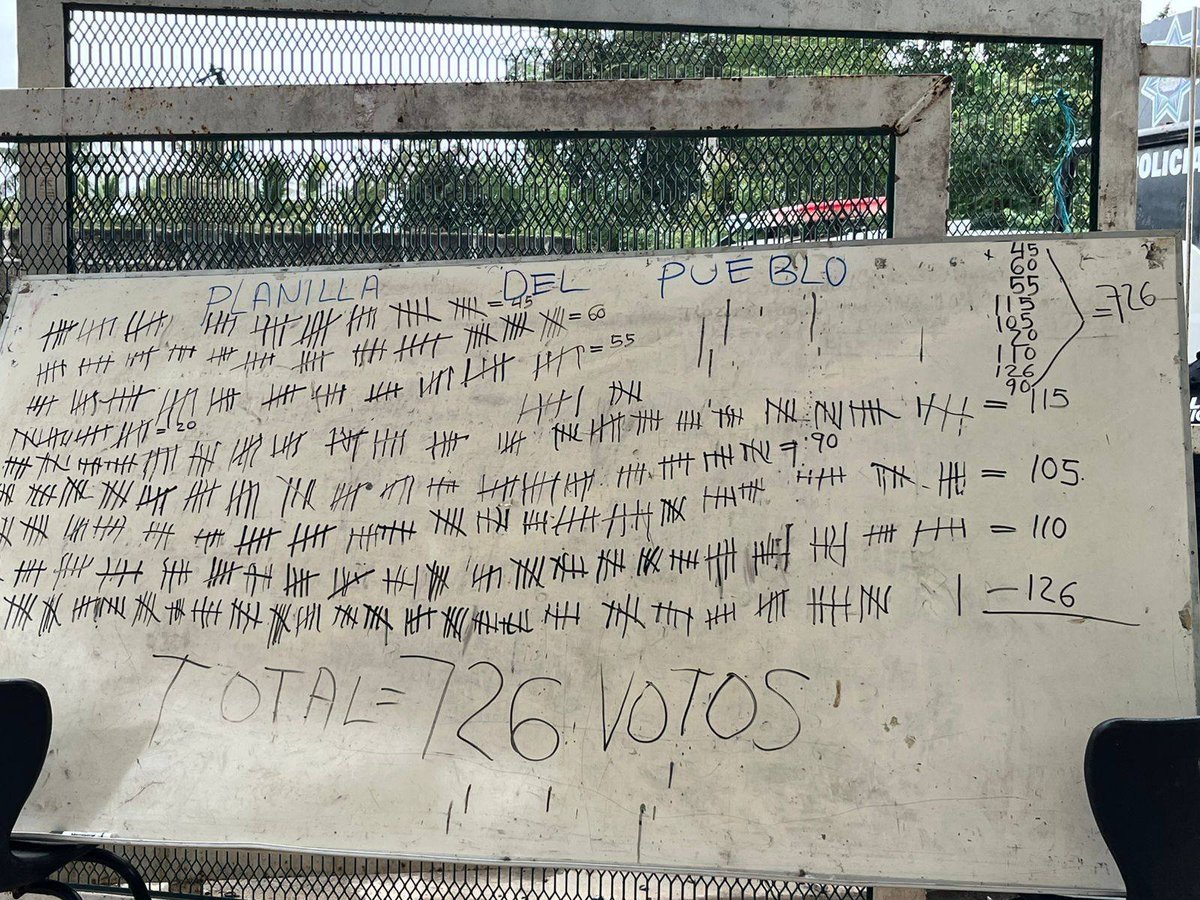 PLANILLA DEL PUEBLO
= 45
= 60
= 55
= 20
= 115
= 90
= 105.
= 110
1 - 126
TOTAL = 726 VOTOS
+ 45
60
55
115
105
20
110
126
90
= 726
POLICIA